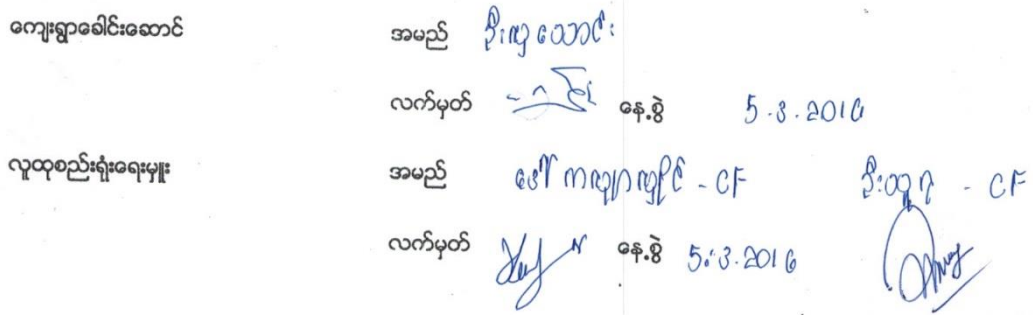 ကျေးရွာခေါင်းဆောင် အမည် ဦးလှသောင်း
လက်မှတ် နေ့စွဲ 5.3.2016
လူထုစည်းရုံးရေးမှူး အမည် ဒေါ် - CF ဦးသူရ - CF
လက်မှတ် နေ့စွဲ 5.3.2016